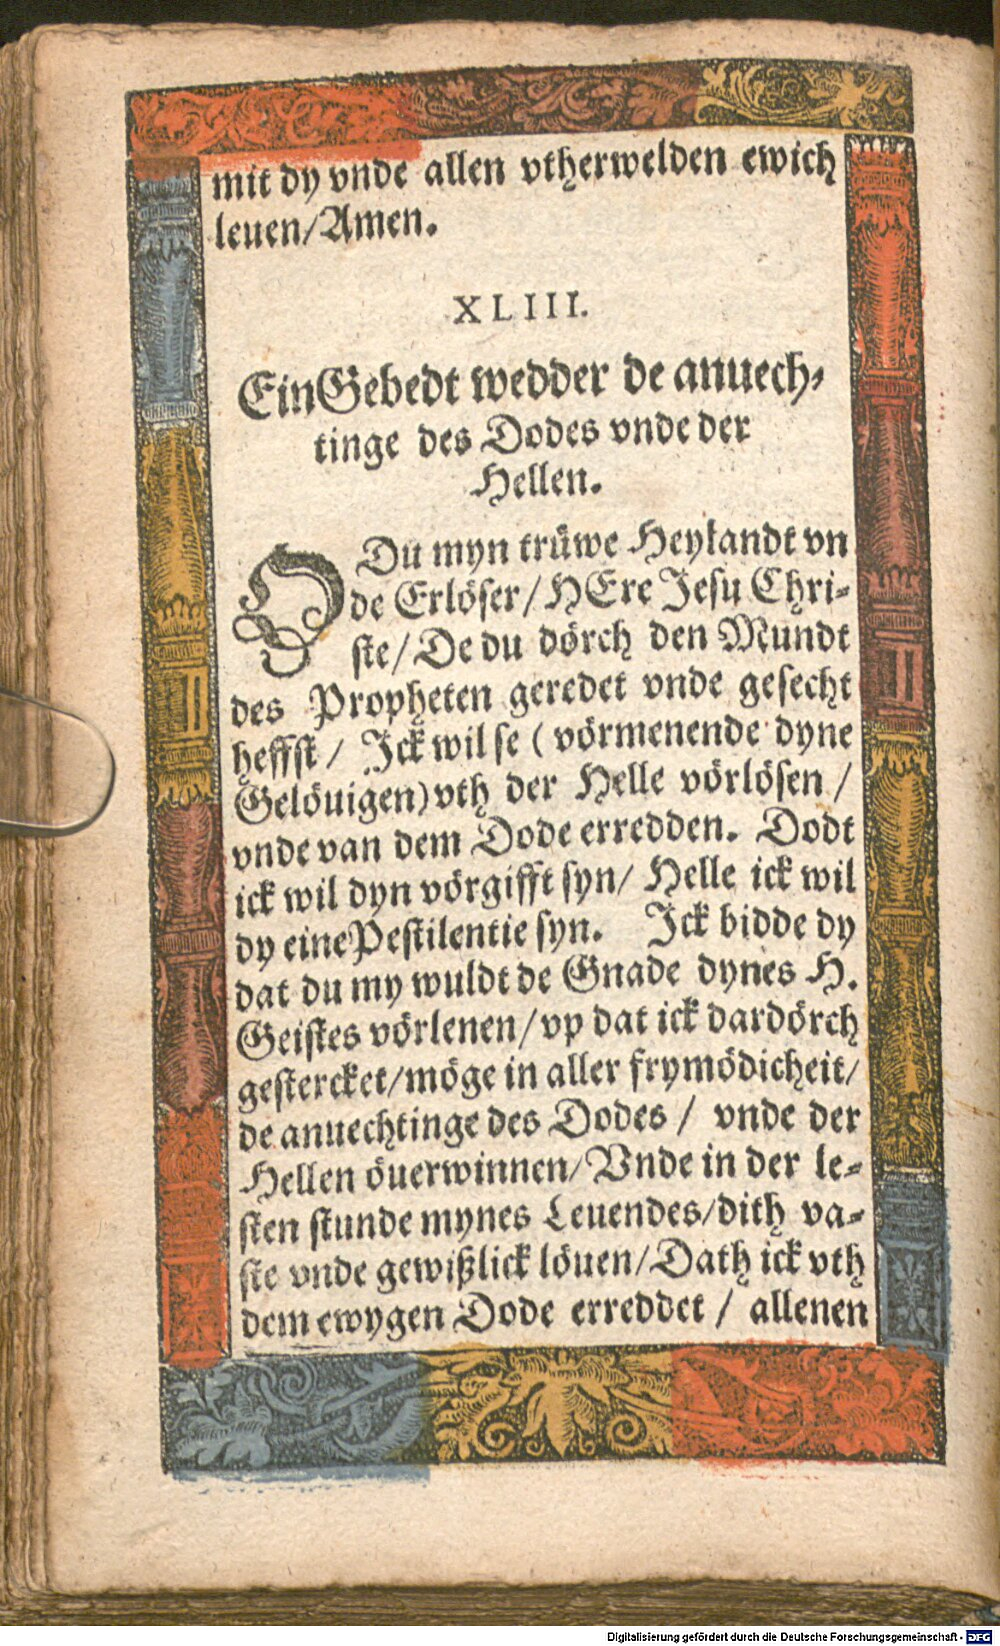 mit dy vnde allen vtherwelden ewich
leuen/Amen.
XLIII.
Ein Gebedt wedder de anuech-
tinge des Dodes vnde der
Hellen.
O Du myn trüwe Heylandt vn
de Erlöser/HEre Jesu Chri-
ste/De du dörch den Mundt
des Propheten geredet vnde gesecht
heffst/ Jck wil se (vörmenende dyne
Gelöuigen) vth der Helle vörlösen/
vnde van dem Dode erredden. Dodt
ick wil dyn vörgifft syn/ Helle ick wil
dy eine Pestilentie syn. Jck bidde dy
dat du my wuldt de Gnade dynes H.
Geistes vörlenen/vp dat ick dardörch
gestercket/möge in aller frymödicheit/
de anuechtinge des Dodes/ vnde der
Hellen öuerwinnen/Vnde in der le-
sten stunde mynes Leuendes/dith va-
ste vnde gewißlick löuen/Dath ick vth
dem ewygen Dode erreddet/ allenen
Digitalisierung gefördert durch die Deutsche Forschungsgemeinschaft - DFG